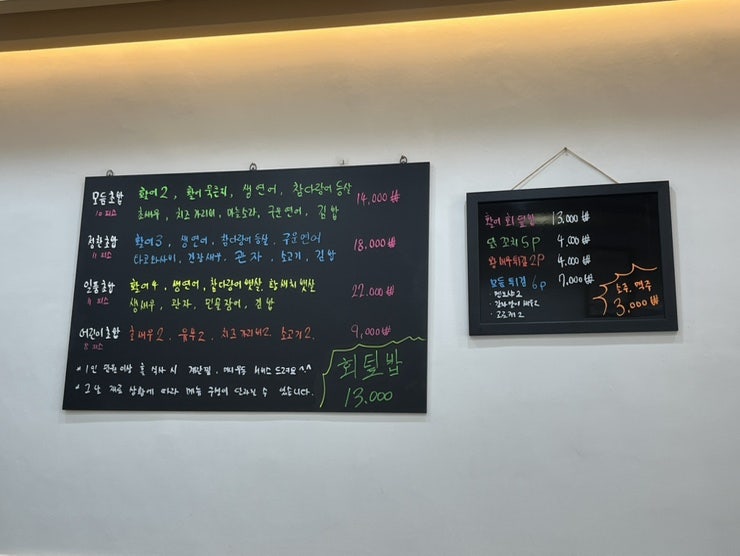 모듬초밥 활어2, 활어묵은지, 생연어, 참다랑어등살 14,000₩
10피스 초새우, 치즈가리비, 구운연어, 김밥
정찬초밥 활어3, 생연어, 참다랑어등살, 구운연어 18,000₩
11피스 타코와사비, 간장새우, 관자, 소고기, 김밥
일품초밥 활어4, 생연어, 참다랑어뱃살, 황새치뱃살 22,000₩
11피스 생새우, 관자, 민물장어, 김밥
어린이초밥 초새우2, 유부2, 치즈가리비2, 소고기2. 9,000₩
8피스
* 1인 만원이상 홀 식사 시 계란찜, 미니우동 서비스 드려요^^
* 그날 재료 상황에 따라 메뉴 구성이 달라질 수 있습니다.
회덮밥
13.000
활어회덮밥 13,000₩
꼬치 5P 4,000₩
왕새우튀김 2P 4,000₩
모듬튀김 6P 7,000₩
2
새우2
2
소주, 맥주
3,000₩